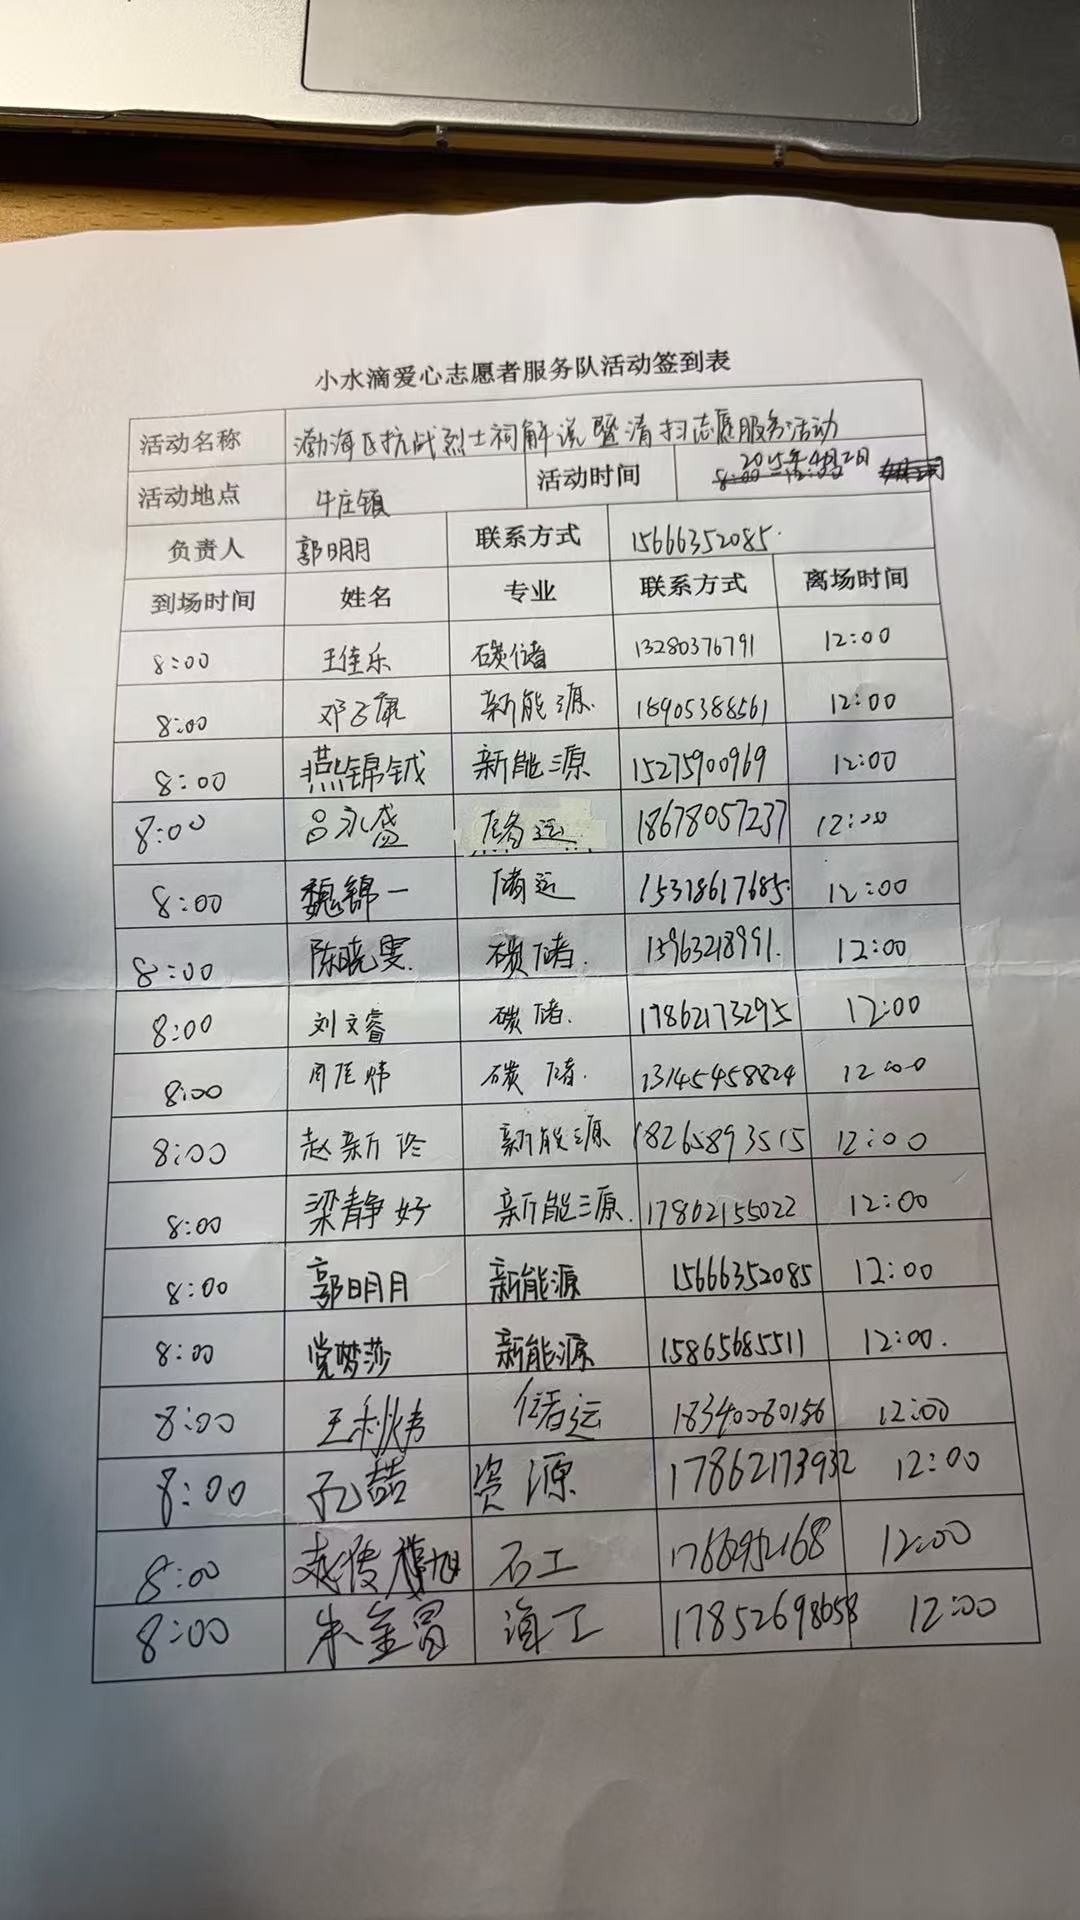 小水滴爱心志愿者服务队活动签到表
活动名称 渤海区抗战烈士祠解说暨清扫志愿服务活动
活动地点 牛庄镇 活动时间 2025年4月2日
负责人 郭明月 联系方式 15666352085
到场时间 姓名 专业 联系方式 离场时间
8:00 王佳乐 碳储 13280376791 12:00
8:00 邓子康 新能源 18905388561 12:00
8:00 燕锦钺 新能源 15275900969 12:00
8:00 吕永盛 储运 18678057237 12:00
8:00 魏锦一 储运 15318617685 12:00
8:00 陈晓雯 碳储 13963218991 12:00
8:00 刘文睿 碳储 17862173295 12:00
8:00 周佳炜 碳储 13145458824 12:00
8:00 赵新 新能源 18265893515 12:00
8:00 梁静好 新能源 17862155022 12:00
8:00 郭明月 新能源 15666352085 12:00
8:00 党梦莎 新能源 15865685511 12:00
8:00 王秋炜 储运 18340080156 12:00
8:00 孔喆 资源 17862173932 12:00
8:00 石工 12:00
8:00 朱金冒 海工 17852698658 12:00